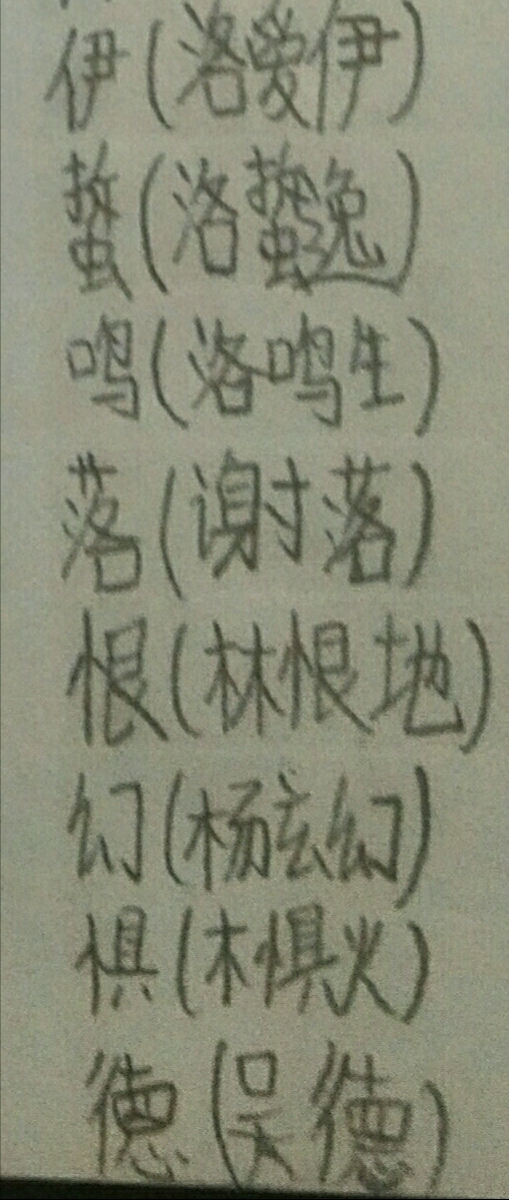 伊(洛爱伊)
蜇(洛蜇逸)
鸣(洛鸣生)
落(谢落)
恨(林恨地)
幻(杨玄幻)
惧(木惧火)
德(吴德)